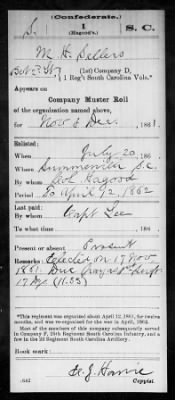 (Confederate.)
S. I S. C.
(Hagood's).
M. H. Sellers
(1st) Company D,
1 Reg't South Carolina Vols.*
Appears on
Company Muster Roll
of the organization named above,
for Nov & Dec, 1861.
Enlisted:
When July 20, 186
Where Summerville S.C.
By whom Col Hagood
Period To April 12, 1862
Last paid:
By whom Capt Lee
To what time , 186
Present or absent Present
Remarks: Elected on 17 Nov
1861. Due
*This regiment was organized about April 12, 1861, for twelve
months, and was re-organized for the war in April, 1862.
Most of the members of this company subsequently served in
Company F, 25th Regiment South Carolina Infantry, and a
few in the 2d Regiment South Carolina Artillery.
Book mark:
(642)
Copyist.